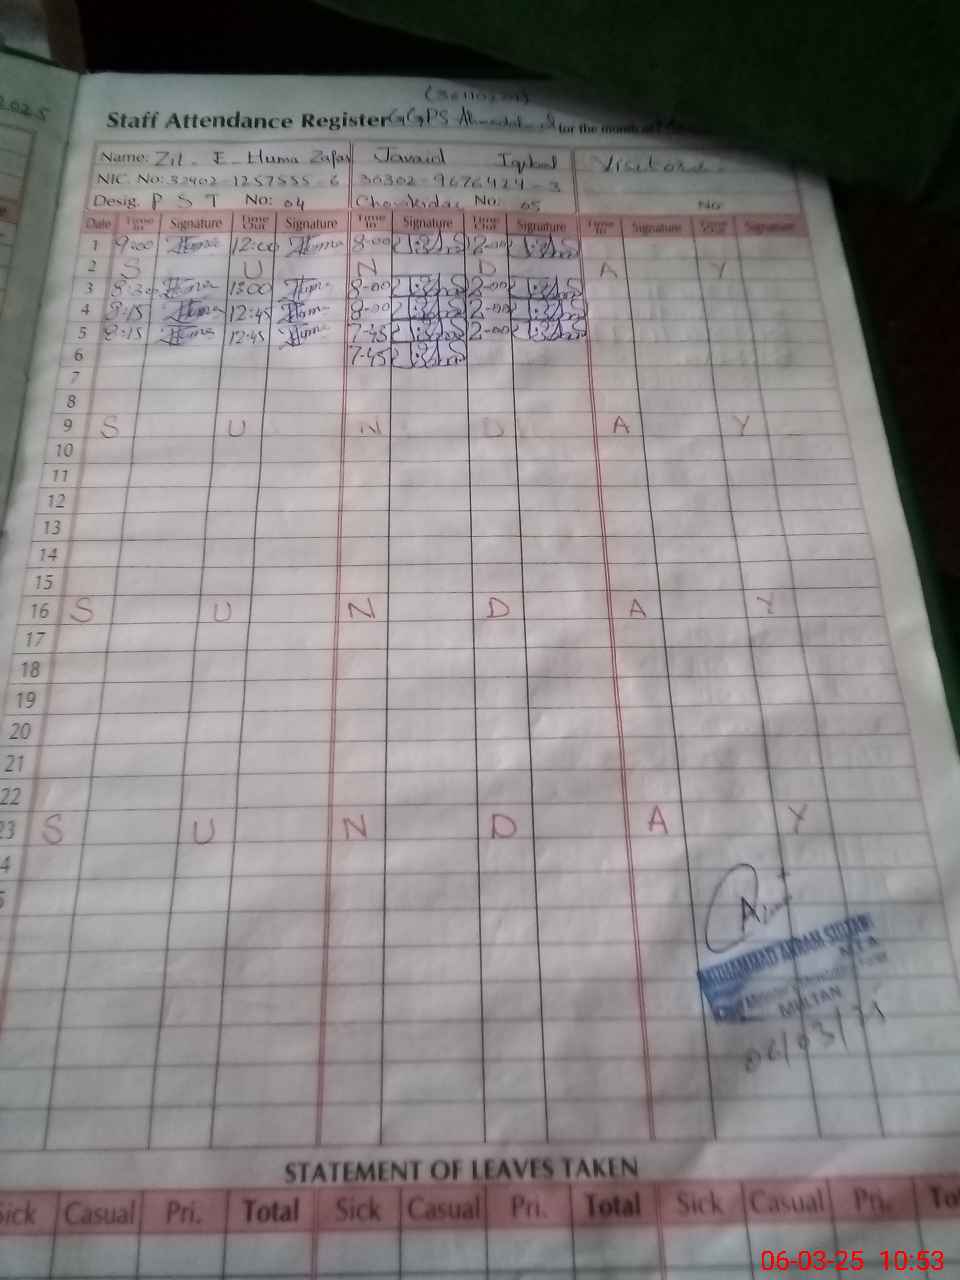 2025
Staff Attendance Register GGPS for the month of
Name: Zil - E - Huma Zafar Javaid Iqbal
NIC. No: 32402-1257555-6 36302-9676424-3
Desig. P S T No: 04 Chowkidar No: 05 No:
Date Time In Signature Time Out Signature Time In Signature Time Out Signature Time In Signature Time Out Signature
1 9:00 Huma 12:00 Huma 8-00 2-00
2 S U N D A Y
3 8:30 Huma 13:00 Huma 8-00 2-00
4 8:15 Huma 12:45 Huma 8-00 2-00
5 8:15 Huma 12:45 Huma 7-45 2-00
6 7-45
7
8
9 S U N D A Y
10
11
12
13
14
15
16 S U N D A Y
17
18
19
20
21
22
23 S U N D A Y
4
5
MUHAMMAD
MULTAN
06/03/25
STATEMENT OF LEAVES TAKEN
Sick Casual Pri. Total Sick Casual Pri. Total Sick Casual Pri. To
06-03-25 10:53